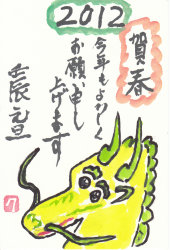 2012
賀春
今年もよろしく
お願い申し
上げます
壬辰 元旦